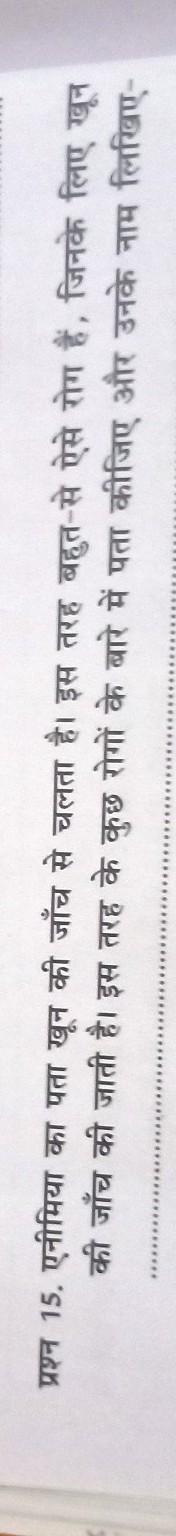 प्रश्न 15. एनीमिया का पता खून की जाँच से चलता है। इस तरह बहुत-से ऐसे रोग हैं, जिनके लिए खून
की जाँच की जाती है। इस तरह के कुछ रोगों के बारे में पता कीजिए और उनके नाम लिखिए-